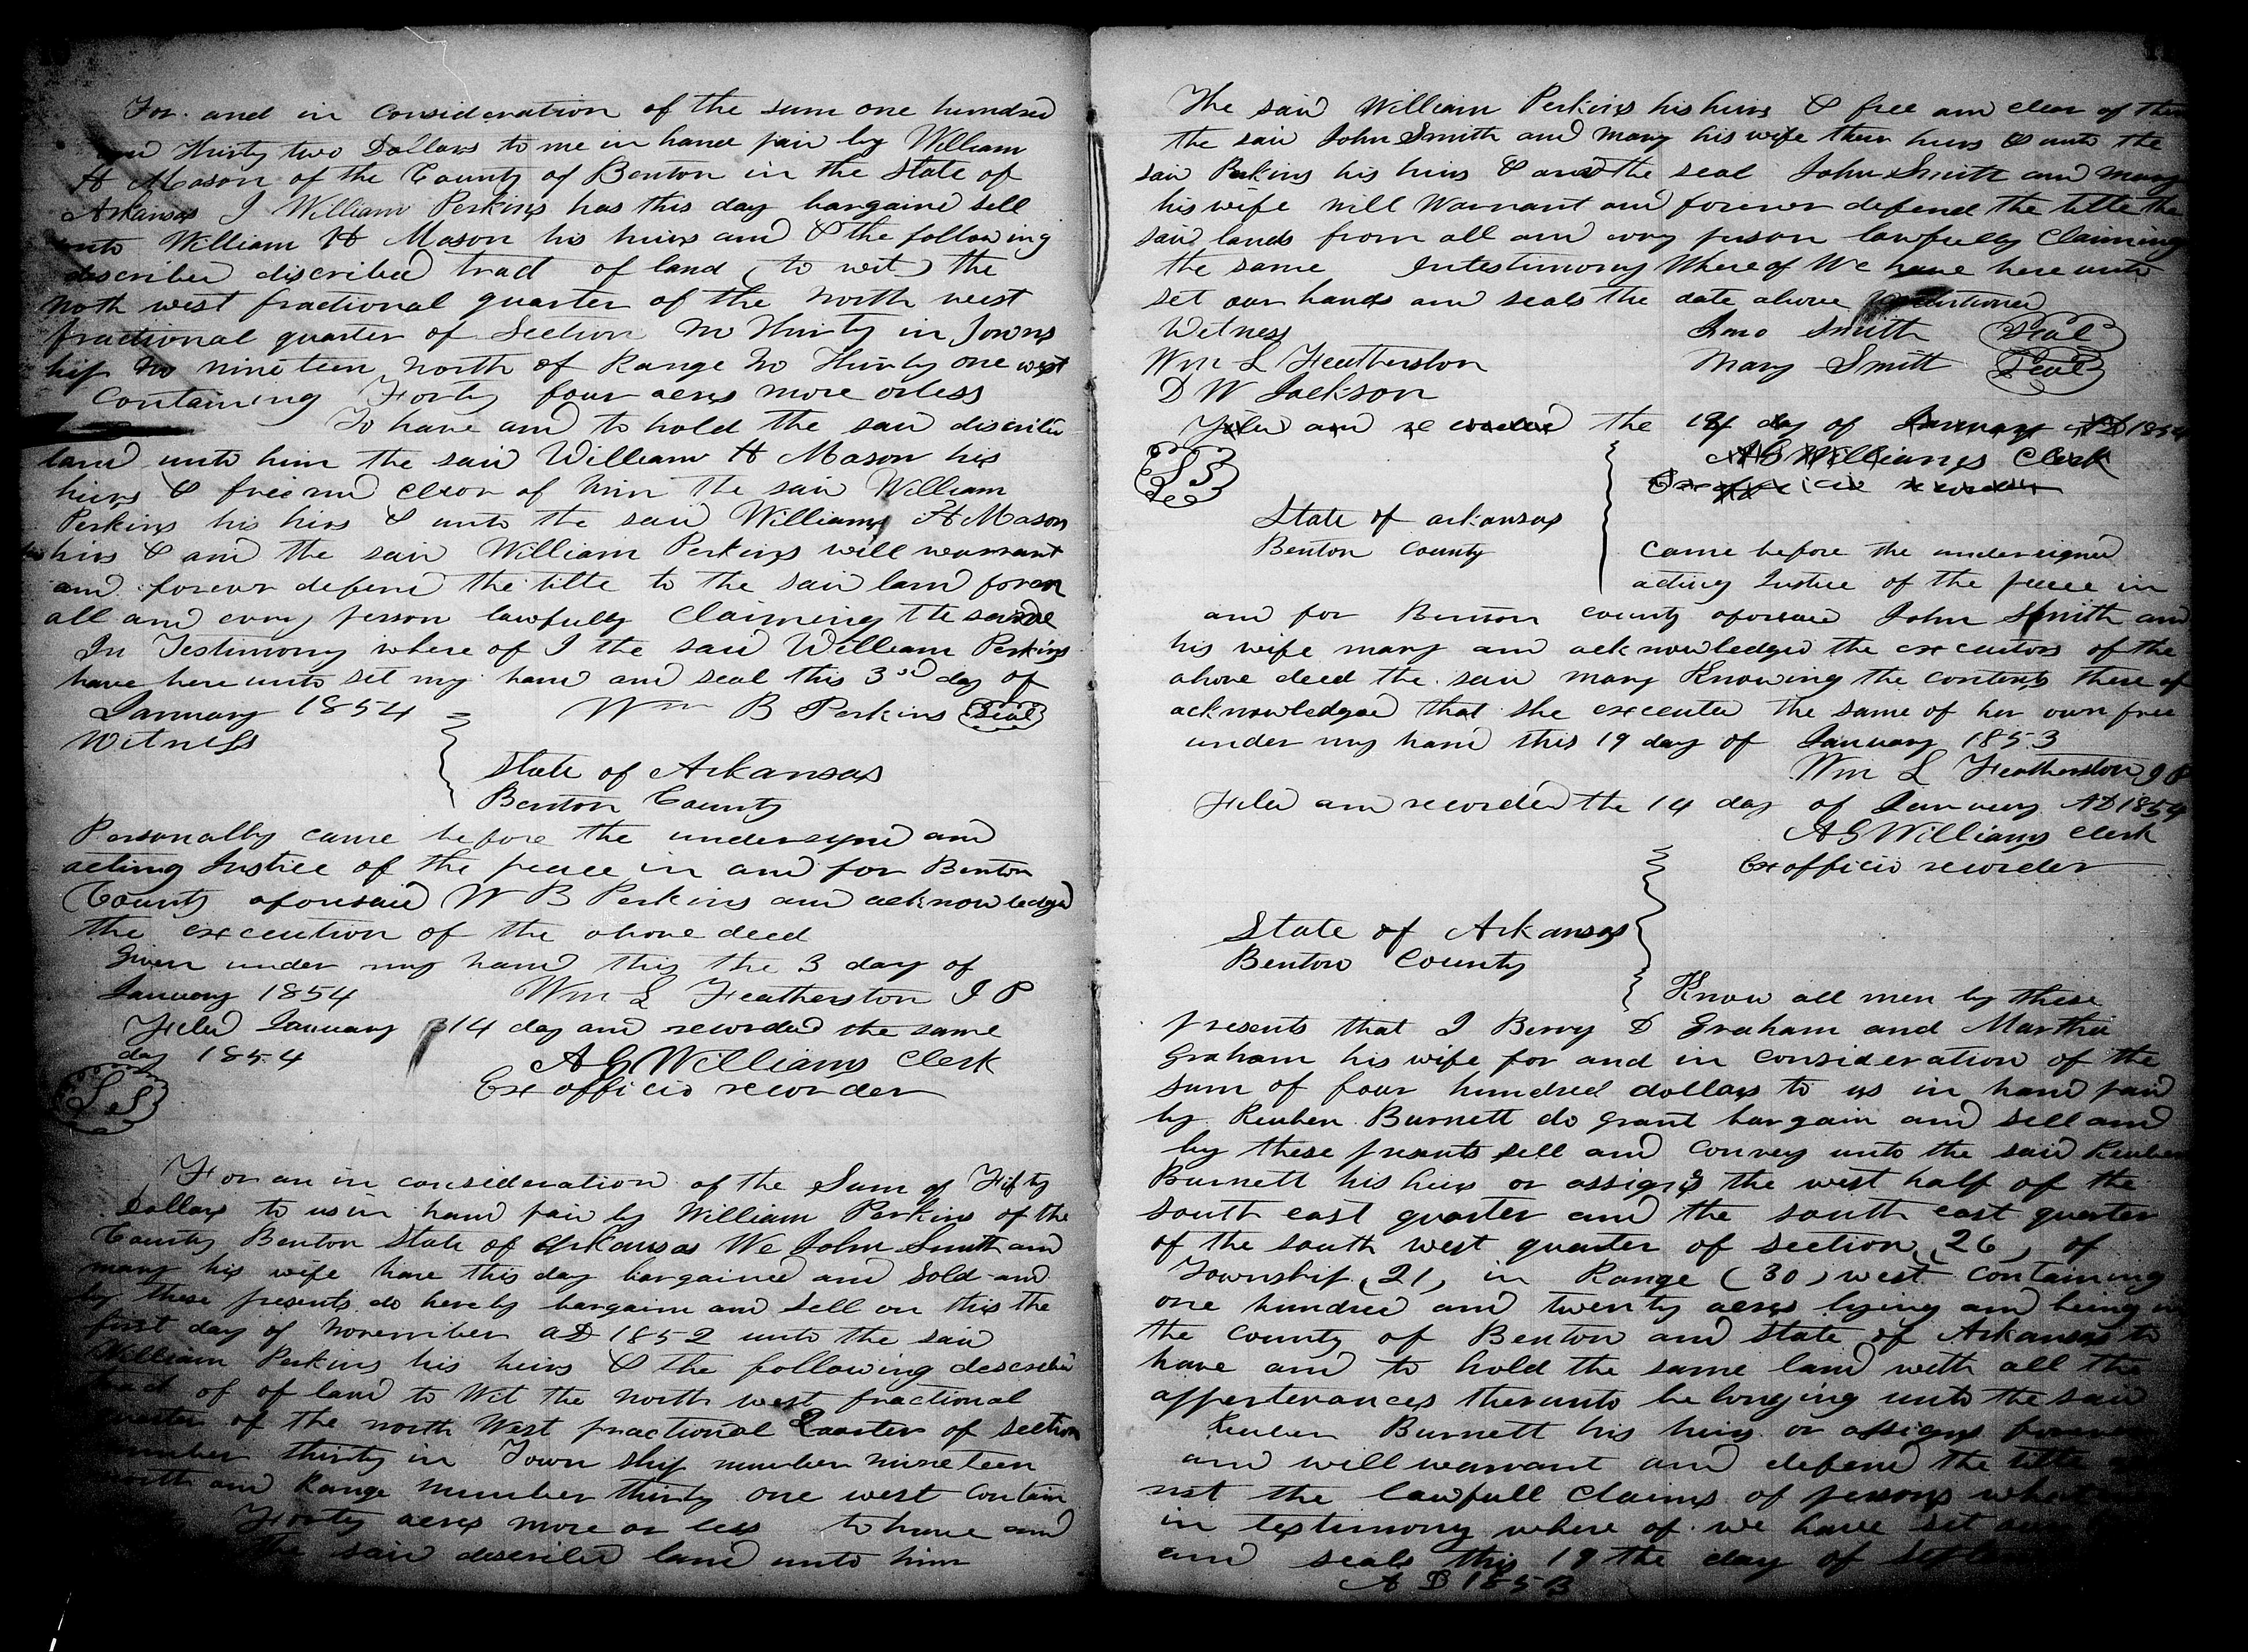 For and in consideration of the sum one hundred
and thirty two Dollars to me in hand paid by William
H Mason of the County of Benton in the State of
Arkansas I William Perkins has this day bargaind sell
unto William H Mason his heirs and & the following
discribed discribed tract of land (to wit) the
North west fractional quarter of the North west
fractional quarter of Section No Thirty in Towns
hip No nineteen North of Range No Thirty one west
Containing Forty four acres more or less
To have and to hold the said discribed
land unto him the said William H Mason his
heirs & free and clear of him the said William
Perkins his heirs & unto the said William H Mason
his heirs & and the said William Perkins will warrant
and forever defend the title to the said land
all and every person lawfully claiming the same
In Testimony where of I the said William Perkins
have here unto set my hand and seal this 3rd day of
January 1854 Wm B Perkins (Seal)
Witness
State of Arkansas
Benton County
Personally came before the undersigned and
acting Justice of the peace in and for Benton
County aforesaid W B Perkins and acknowledged
the execution of the above deed
Given under my hand this the 3 day of
January 1854 Wm L Featherston J P
Filed January 14 day and recorded the same
day 1854 A G Williams Clerk
Ex officio recorder
L S
For an in consideration of the Sum of Fifty
Dollars to us in hand paid by William Perkins of the
County Benton State of Arkansas We John Smith and
mary his wife have this day bargained and Sold and
by these presents do hereby bargain and Sell on this the
first day of November AD 1852 unto the said
William Perkins his heirs & the following described
tract of of land to Wit the North west fractional
quarter of the north West fractional Quarter of section
number thirty in Town ship number nineteen
north and Range number thirty one west contain
Forty acres more or less to have and
the said described land unto him
The said William Perkins his heirs & free and clear of them
the said John Smith and Mary his wife their heirs & unto the
said Perkins his heirs & and the seal John Smith and Mary
his wife will Warrant and forever defend the title the
said lands from all and every person lawfully claiming
the same In testimony Where of We have here unto
set our hands and seals the date above mentioned
Witness Jno Smith (Seal)
Wm L Featherston Mary Smith (Seal)
D W Jackson
Filed and recorded the day of January AD 1854
A G Williams Clerk
Ex officio recorder
L S
State of arkansas
Benton County
Came before the undersigned
acting Justice of the peace in
and for Benton county aforesaid John Smith and
his wife mary and acknowledged the execution of the
above deed the said mary Knowing the contents there of
acknowledged that she executed the same of her own free
under my hand this 19 day of January 1853
Wm L Featherston J P
Filed and recorded the 14 day of January AD 1854
A G Williams Clerk
Ex officio recorder
State of Arkansas
Benton County
Know all men by these
presents that I Berry D Graham and Martha
Graham his wife for and in consideration of the
sum of four hundred dollars to us in hand paid
by Reuben Burnett do grant bargain and sell and
by these presents sell and convey unto the said Reuben
Burnett his heirs or assigns the west half of the
south east quarter and the south east quarter
of the south west quarter of section (26) of
Township (21) in Range (30) west containing
one hundred and twenty acres lying and being in
the county of Benton and state of Arkansas to
have and to hold the same land with all the
appertenances therunto belonging unto the said
Reuben Burnett his heirs or assigns forever
and will warrant and defend the title
nst the lawfull claims of persons
in testimony where of we have set our
and seals this 19 the day of
A D 1853